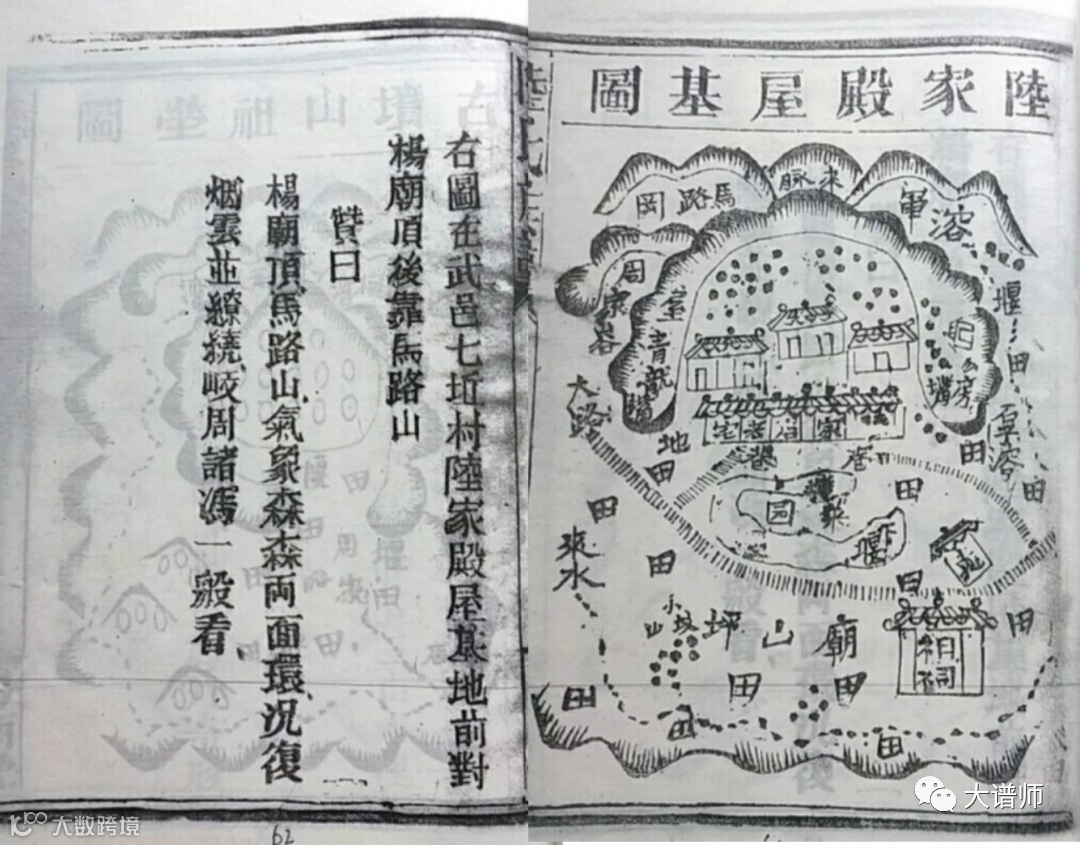 陸家殿屋基圖
來脈
馬路岡
軍
溶
周
家
堰
青龍嘴
房
大路
宅
家
地
田
田
田
田
田
田
園
堰
來水
田
田
田
小坂
山
廟山坪
祖祠
田
田
田
田
田
田
右圖在武邑七坵村陸家殿屋基地前對
楊廟頂後靠馬路山
贊曰
楊廟頂馬路山氣象森森両面環況復
烟雲並繚繞岐周諸馮一般看
62
大数跨境
大谱师